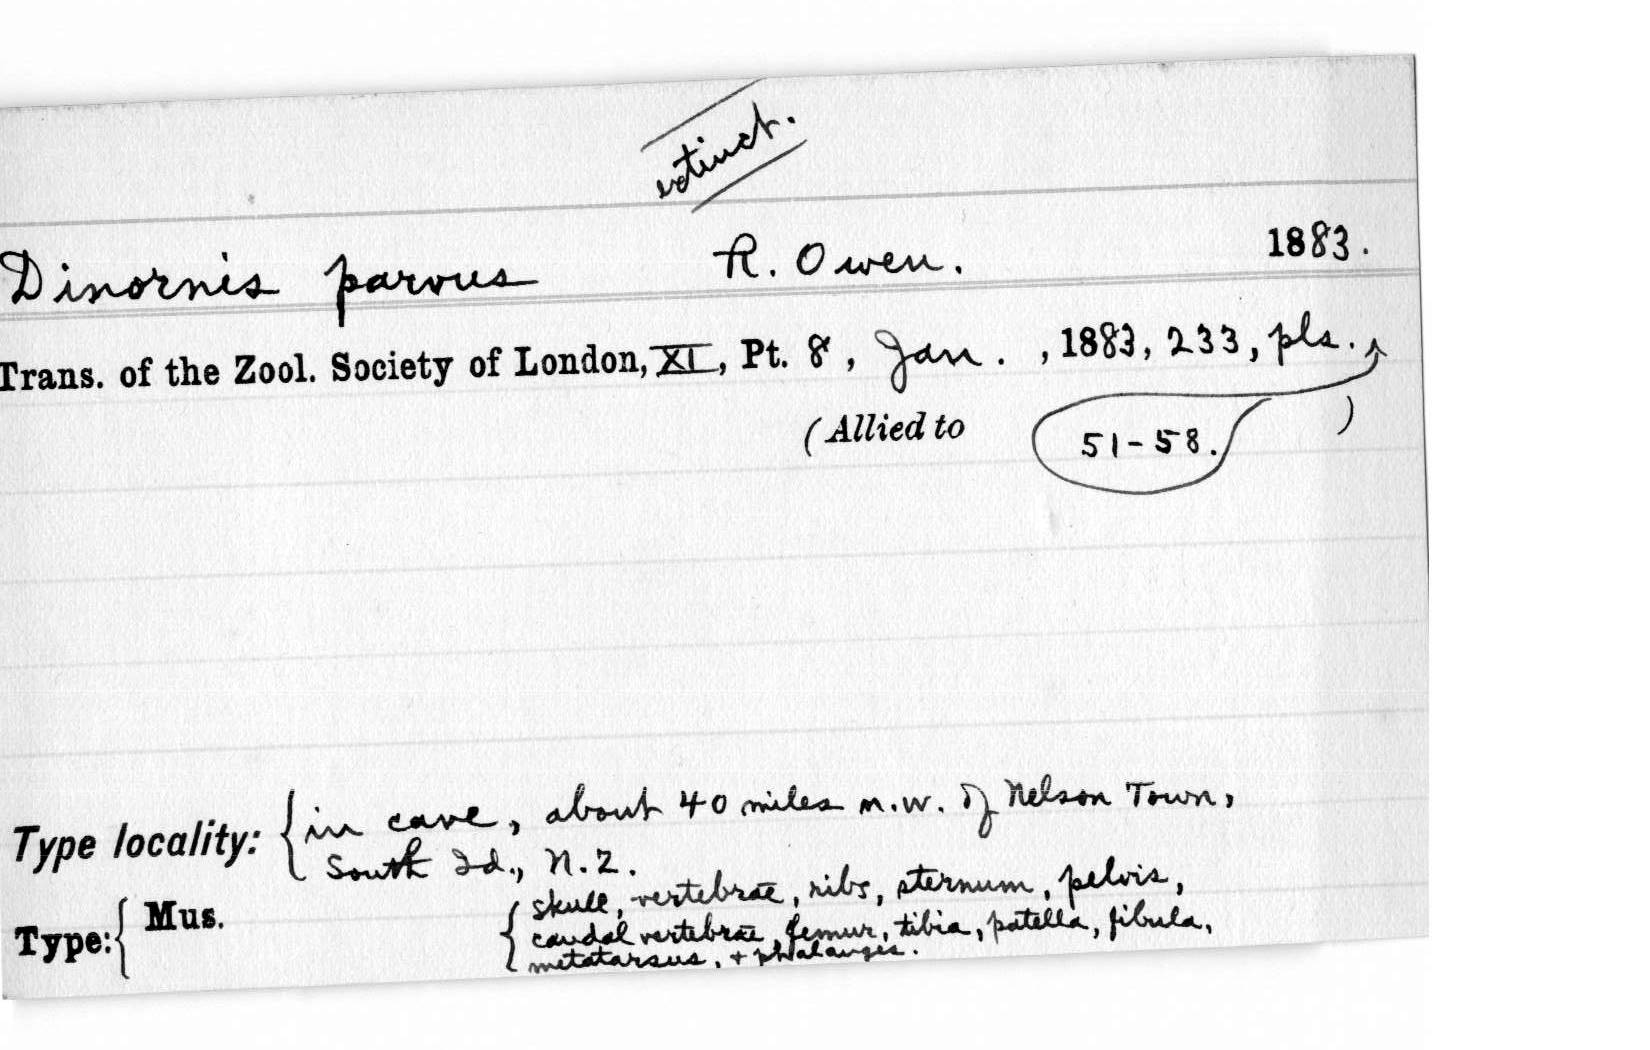 extinct.
Dinornis parvus R. Owen. 1883.
Trans. of the Zool. Society of London, XI, Pt. 8, Jan. , 1883, 233, pls.
(Allied to 51-58. )
Type locality: { in cave, about 40 miles n.w. of Nelson Town,
South Id., N.Z.
Type: { Mus. { skull, vertebrae, ribs, sternum, pelvis,
caudal vertebrae, femur, tibia, patella, fibula,
metatarsus, + phalanges.